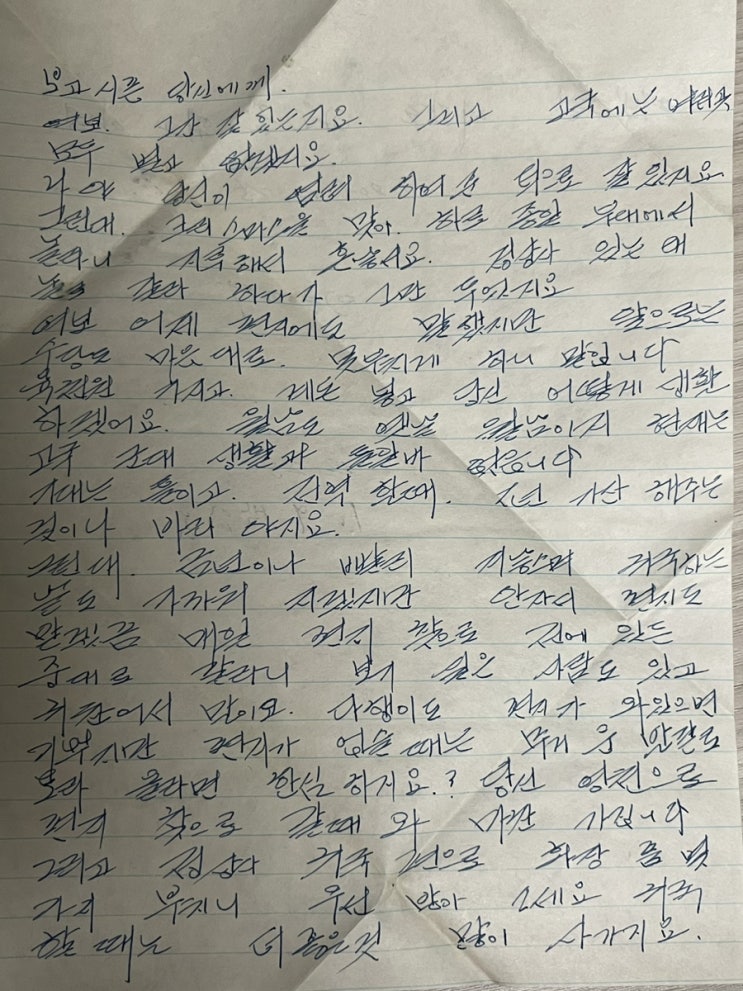 보고 시픈 당신에게.
여보. 그간 잘 있는지요. 그리고 고국에는 여러곳
모두 별고 없겠지요.
나야 당신이 염려 하여 준 덕으로 잘 있지요
그런대. 크리스마스을 맞아. 하로 종일 부대에서
놀라니 지루해서 혼났서요. 정상사 있는 대
놀러 갈라 하다가 그만 두었지요
여보 어제 편지에도 말했지만 앞으로는
수당도 마음대로. 못부치게 하니 말입니다
육천원 가지고. 계돈 넣고 당신 어떻게 생활
하겠어요. 월남도 옛날 월남이지 현재는
고국 군대 생활과 돌알바 없음니다
기대는 틀이고. 전역 할때. 전년 가산 해주는
것이나 바라 야지요.
그런대. 금년이나 빠르리 지났으며 귀국하는
날도 가까워 지겠지만 안자의 편지도
말겠끔 매일 편지 찾으로 전에 있든
중대로 갈라니 보기 싫은 사람도 있고
귀찬어서 말이요. 다행이도 편지가 와있으면
기역지만 편지가 없슬 때는 무거운 발길로
도라 올라면 한심 하지요.? 당신 영전으로
편지 찾으로 갈때 와 마찬 가집니다
그리고 정상사 귀국 편으로 화장 품 몇
가지 부치니 우선 받아 쓰세요 귀국
할 때는 더 좋은것 많이 사가지요.